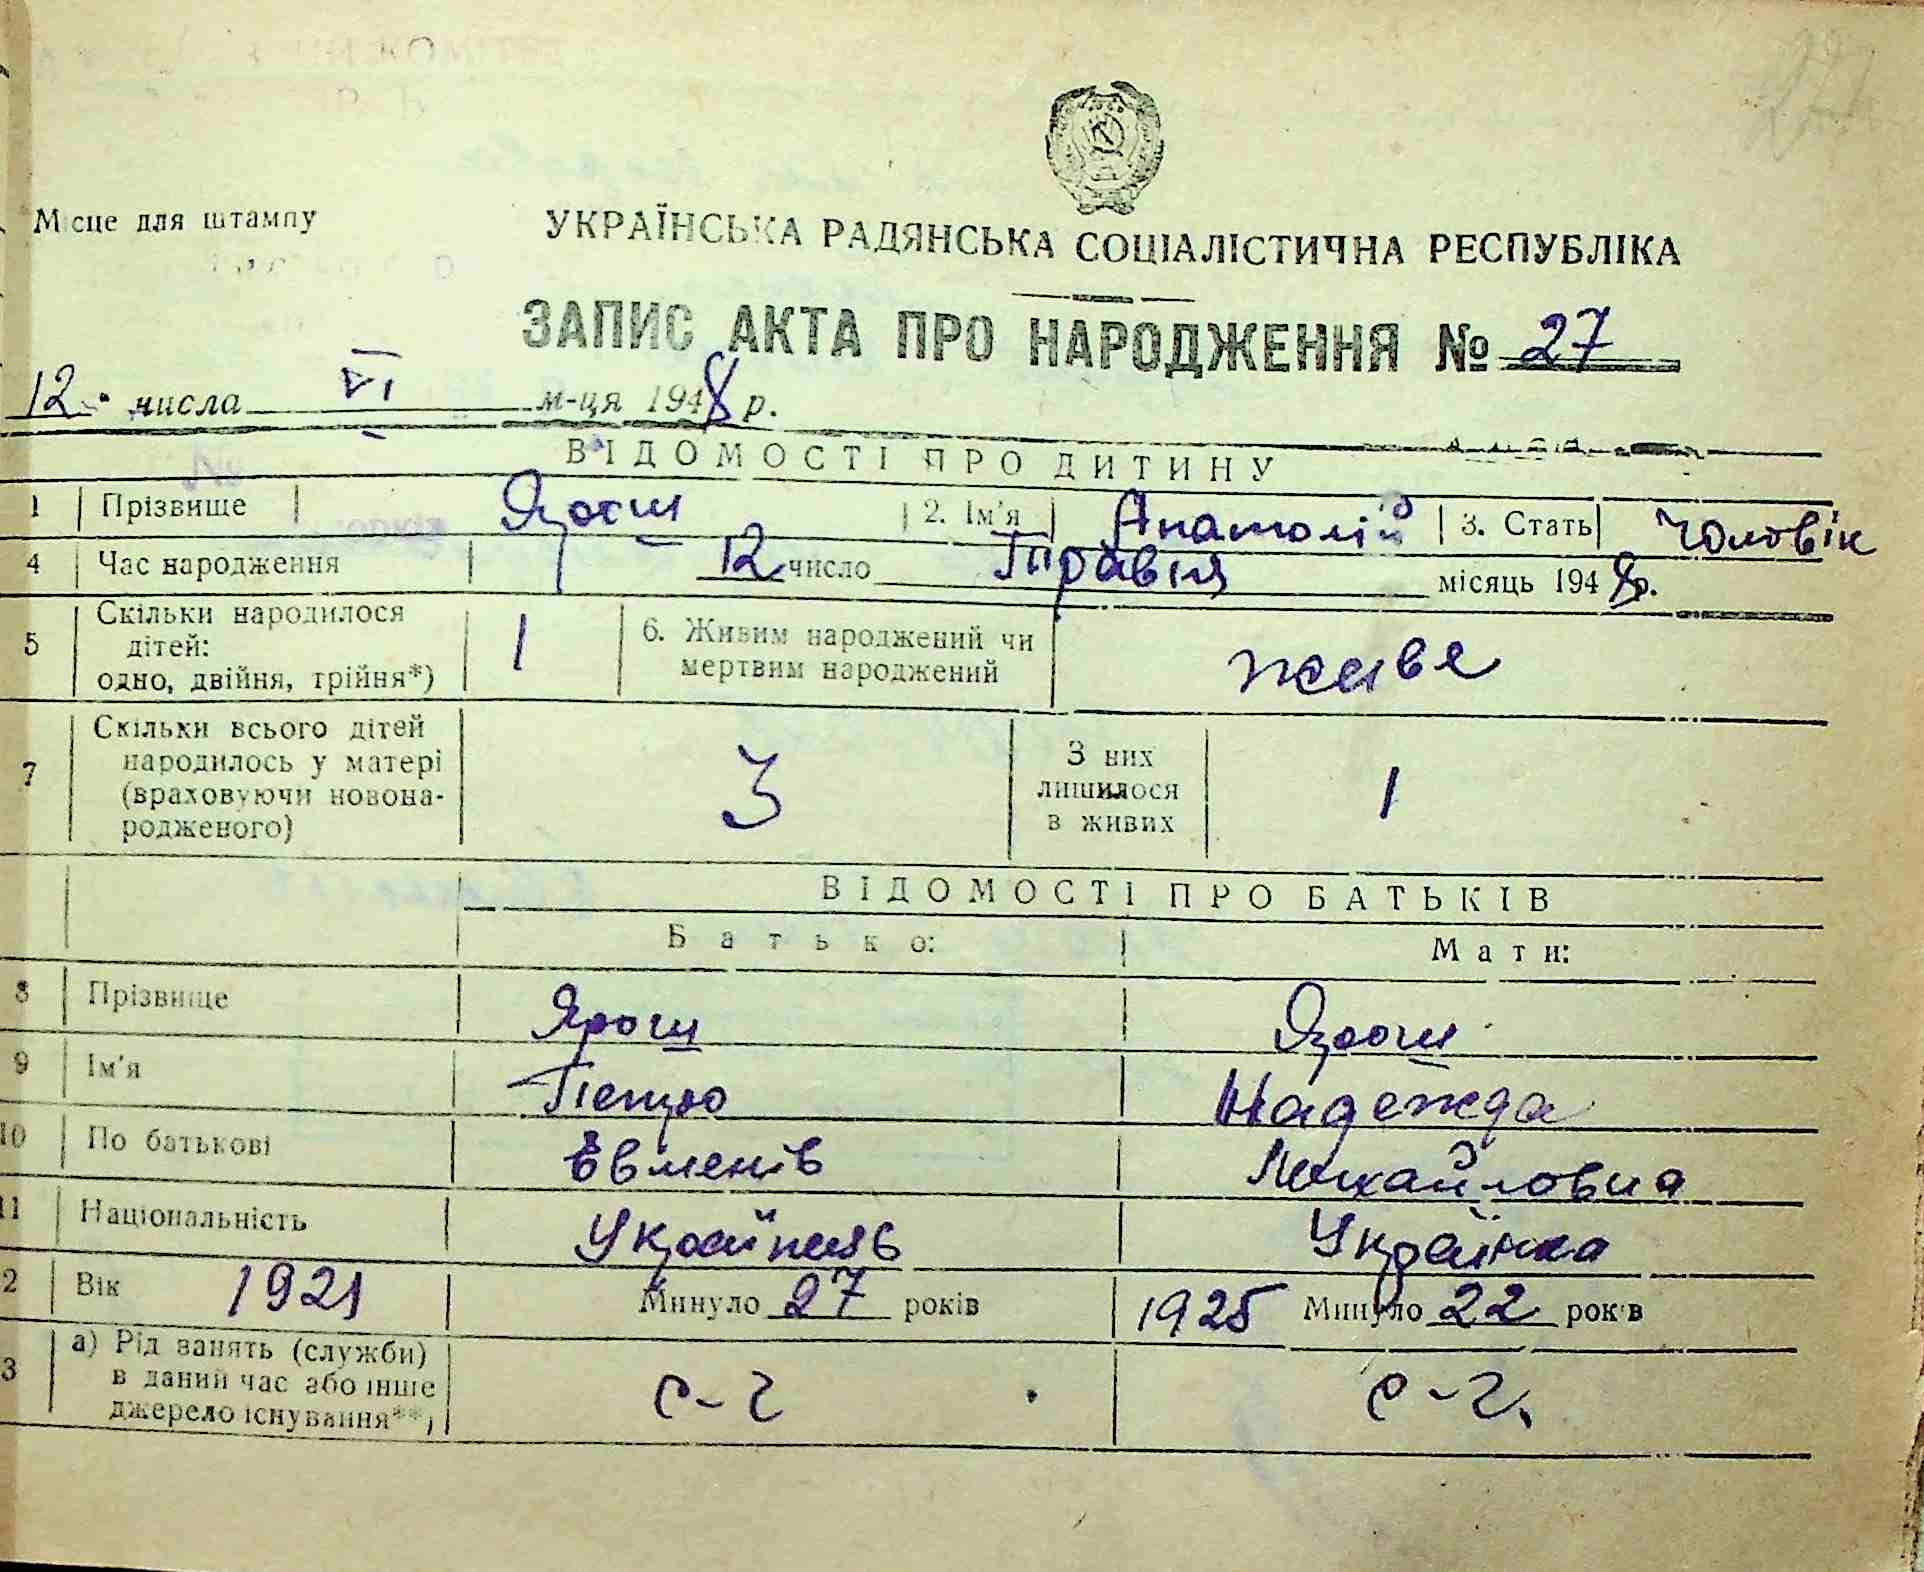 Місце для штампу
УКРАЇНСЬКА РАДЯНСЬКА СОЦІАЛІСТИЧНА РЕСПУБЛІКА
ЗАПИС АКТА ПРО НАРОДЖЕННЯ № 27
12 числа VI м-ця 1948 р.
ВІДОМОСТІ ПРО ДИТИНУ
1 Прізвище Ярош 2. Ім'я Анатолій 3. Стать Чоловік
4 Час народження 12 число Травня місяць 1948 р.
5 Скільки народилося дітей: одно, двійня, трійня*) 1 6. Живим народжений чи мертвим народжений живе
7 Скільки всього дітей народилось у матері (враховуючи новонародженого) 3 З них лишилося в живих 1
ВІДОМОСТІ ПРО БАТЬКІВ
Батько: Мати:
8 Прізвище Ярош Ярош
9 Ім'я Петро Надежда
10 По батькові Евменів Михайловна
11 Національність Українець Українка
2 Вік 1921 Минуло 27 років 1925 Минуло 22 років
3 а) Рід занять (служби) в даний час або інше джерело існування**) с-г с-г.